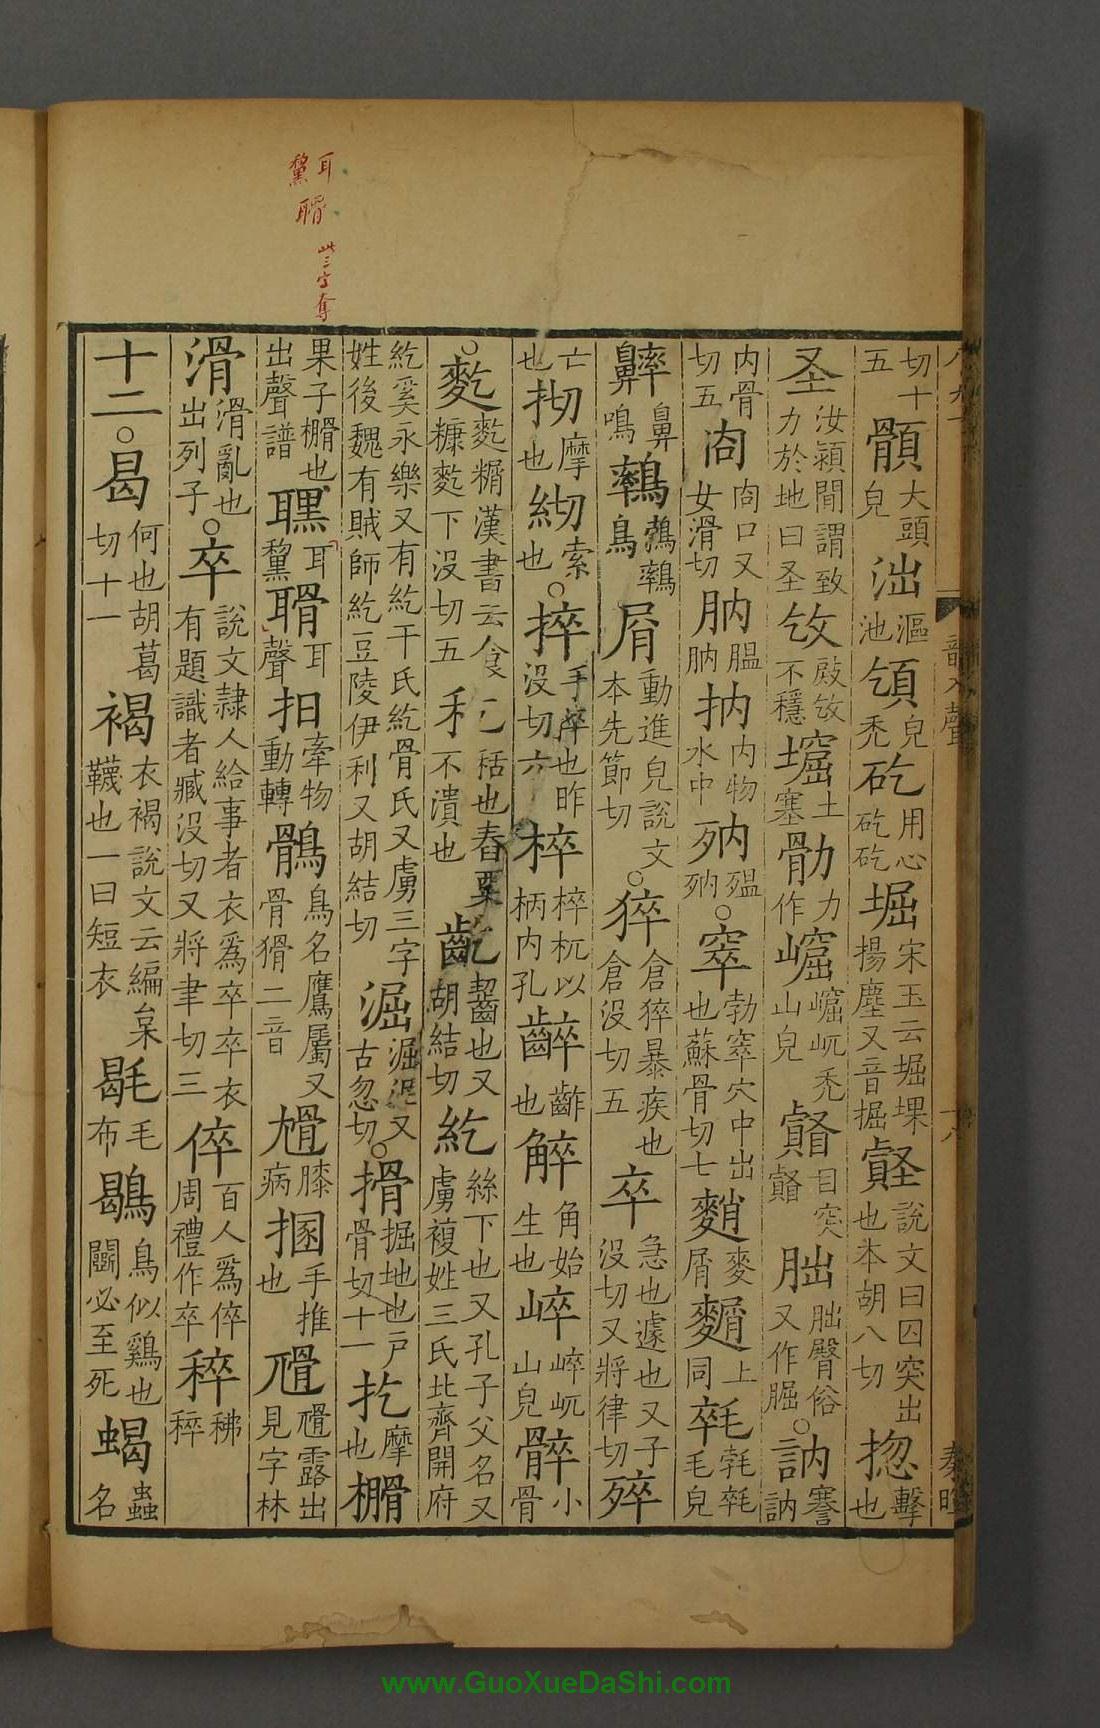 切十五顝大頭皃泏漚池䪼皃秃矻用心矻矻堀宋玉云堀堁揚塵又音掘䝨說文曰囚突出也本胡八切㧾擊也
圣汝潁閒謂致力於地曰圣㪂㪂不穩㙡土塞勓力作崫崫屼秃山皃目突朏朏臀俗又作䏣○訥謇訥
內骨切五㕯㕯口又女滑切肭膃肭抐內物水中殟○窣勃窣穴中出也蘇骨切七麥屑上同毛皃
鼻鳴鳥屑動進皃說文本先節切○猝倉猝暴疾也倉没切五卒急也遽也又子没切又將律切殚
亡也㧅摩也索也○捽手捽也昨没切六椊椊杌以柄內孔齚也角始生也崒崒屼山皃小骨
○麧麧糏漢書云食糠麧下没切五秳也舂粟不潰也齕齧也又胡結切紇絲下也又孔子父名又虜複姓三氏北齊開府
紇奚永樂又有紇干氏紇骨氏又虜三字姓後魏有賊師紇豆陵伊利又胡結切淈淈泥又古忽切○搰掘地也戶骨切十一扢摩也榾
果子榾也出聲譜耳聲牽物動轉鶻鳥名鷹屬又骨猾二音膝病手推也露出見字林
滑滑亂也出列子○卒說文隸人給事者衣爲卒卒衣有題識者臧没切又將聿切三倅百人爲倅周禮作卒稡稡
十二○曷何也胡葛切十一褐衣褐說文云編枲韈也一曰短衣毼毛布鶡鳥似鷄也鬭必至死蝎蟲名
耳
此三字奪
韻入聲
www.GuoXueDaShi.com